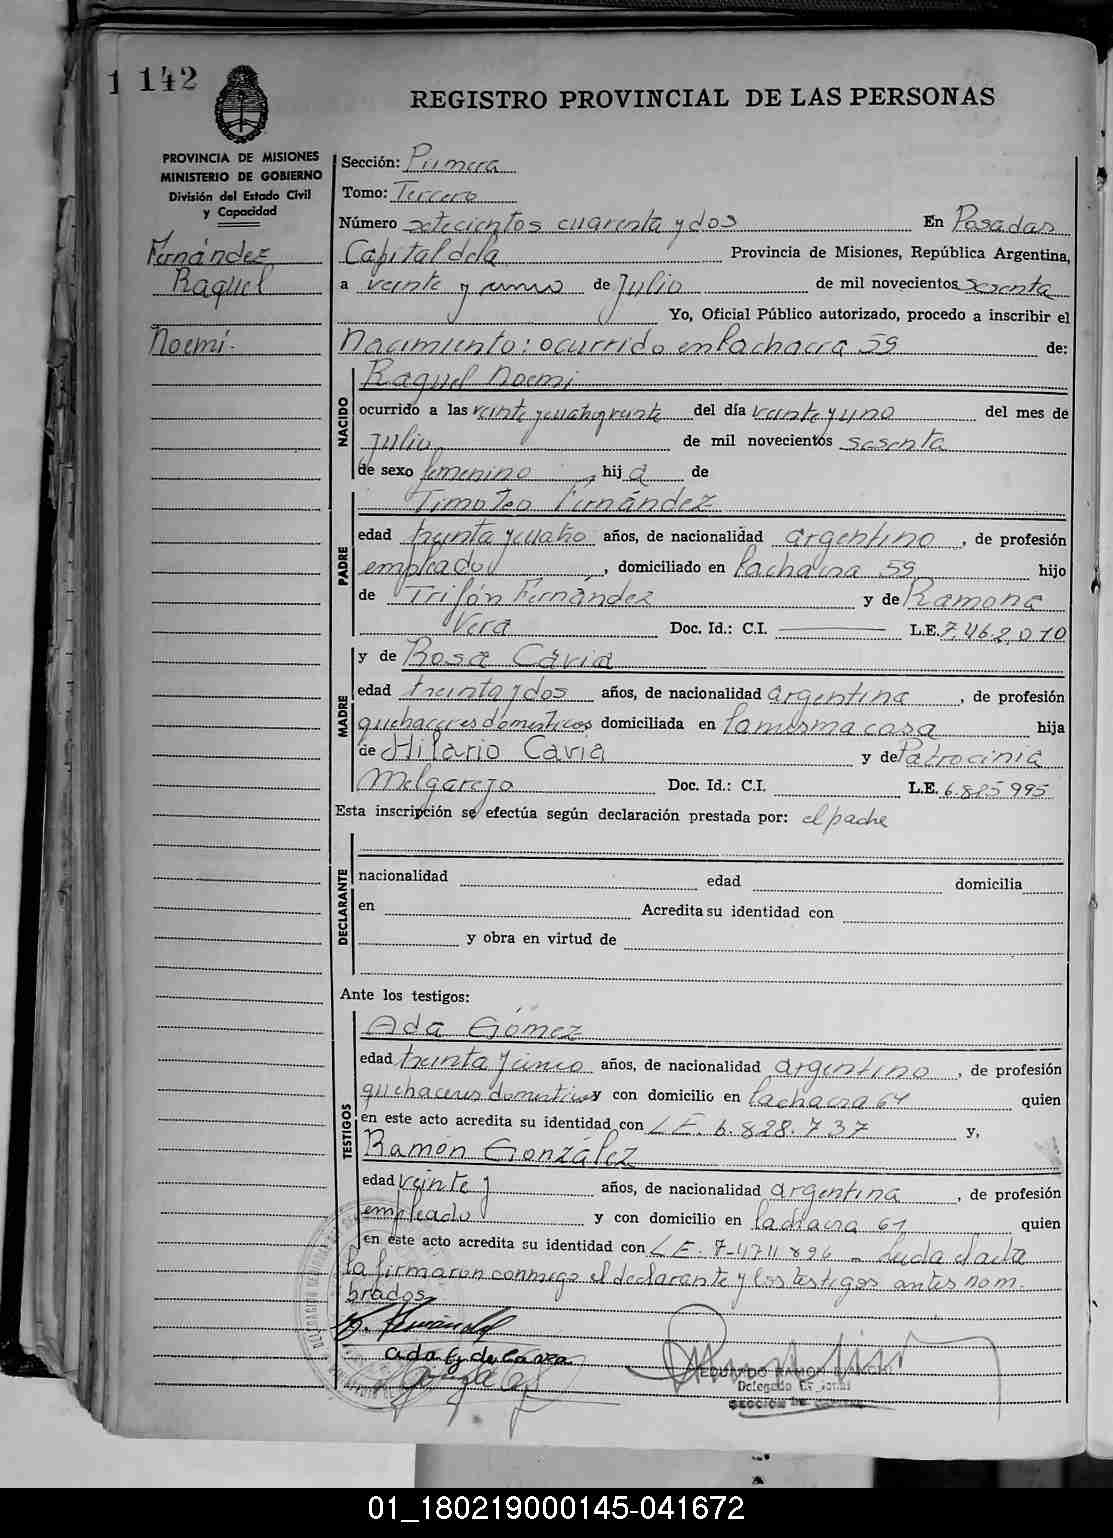 142
REGISTRO PROVINCIAL DE LAS PERSONAS
PROVINCIA DE MISIONES
MINISTERIO DE GOBIERNO
División del Estado Civil
y Capacidad
Fernández
Raquel
Noemi.
Sección: Primera
Tomo: Tercero
Número setecientos cuarenta y dos En Posadas
Capital dela Provincia de Misiones, República Argentina,
a veinte y uno de Julio de mil novecientos sesenta
Yo, Oficial Público autorizado, procedo a inscribir el
Nacimiento: ocurrido en lachacra 59 de:
NACIDO
Raquel Noemi
ocurrido a las veinte y cuatro del día veinte y uno del mes de
Julio de mil novecientos sesenta
de sexo femenino, hija de
PADRE
Timoteo Fernández
edad treinta y cuatro años, de nacionalidad argentino, de profesión
empleado, domiciliado en lachacra 59 hijo
de Trifón Fernández y de Ramona
Vera Doc. Id.: C.I. L.E. 7.462.010
MADRE
y de Rosa Cavia
edad treinta y dos años, de nacionalidad argentina, de profesión
quehaceres domesticos domiciliada en lamismacasa hija
de Hilario Cavia y de Patrocinia
Melgarejo Doc. Id.: C.I. L.E. 6.825995
Esta inscripción se efectúa según declaración prestada por: el padre
DECLARANTE
nacionalidad edad domicilia
en Acredita su identidad con
y obra en virtud de
Ante los testigos:
TESTIGOS
Ada Gómez
edad treinta y cinco años, de nacionalidad argentino, de profesión
quehaceres domesticos y con domicilio en lachacra 64 quien
en este acto acredita su identidad con L.E. 6.828.737 y,
Ramón González
edad veinte y años, de nacionalidad argentina, de profesión
empleado y con domicilio en lachacra 61 quien
en este acto acredita su identidad con L.E. 7-4711896 - Leida el acta
la firmaron conmigo el declarante y los testigos antes nom-
brados
Fernández
Ada G. de
EDUARDO RAMON
Delegado
SECCION
01_180219000145-041672